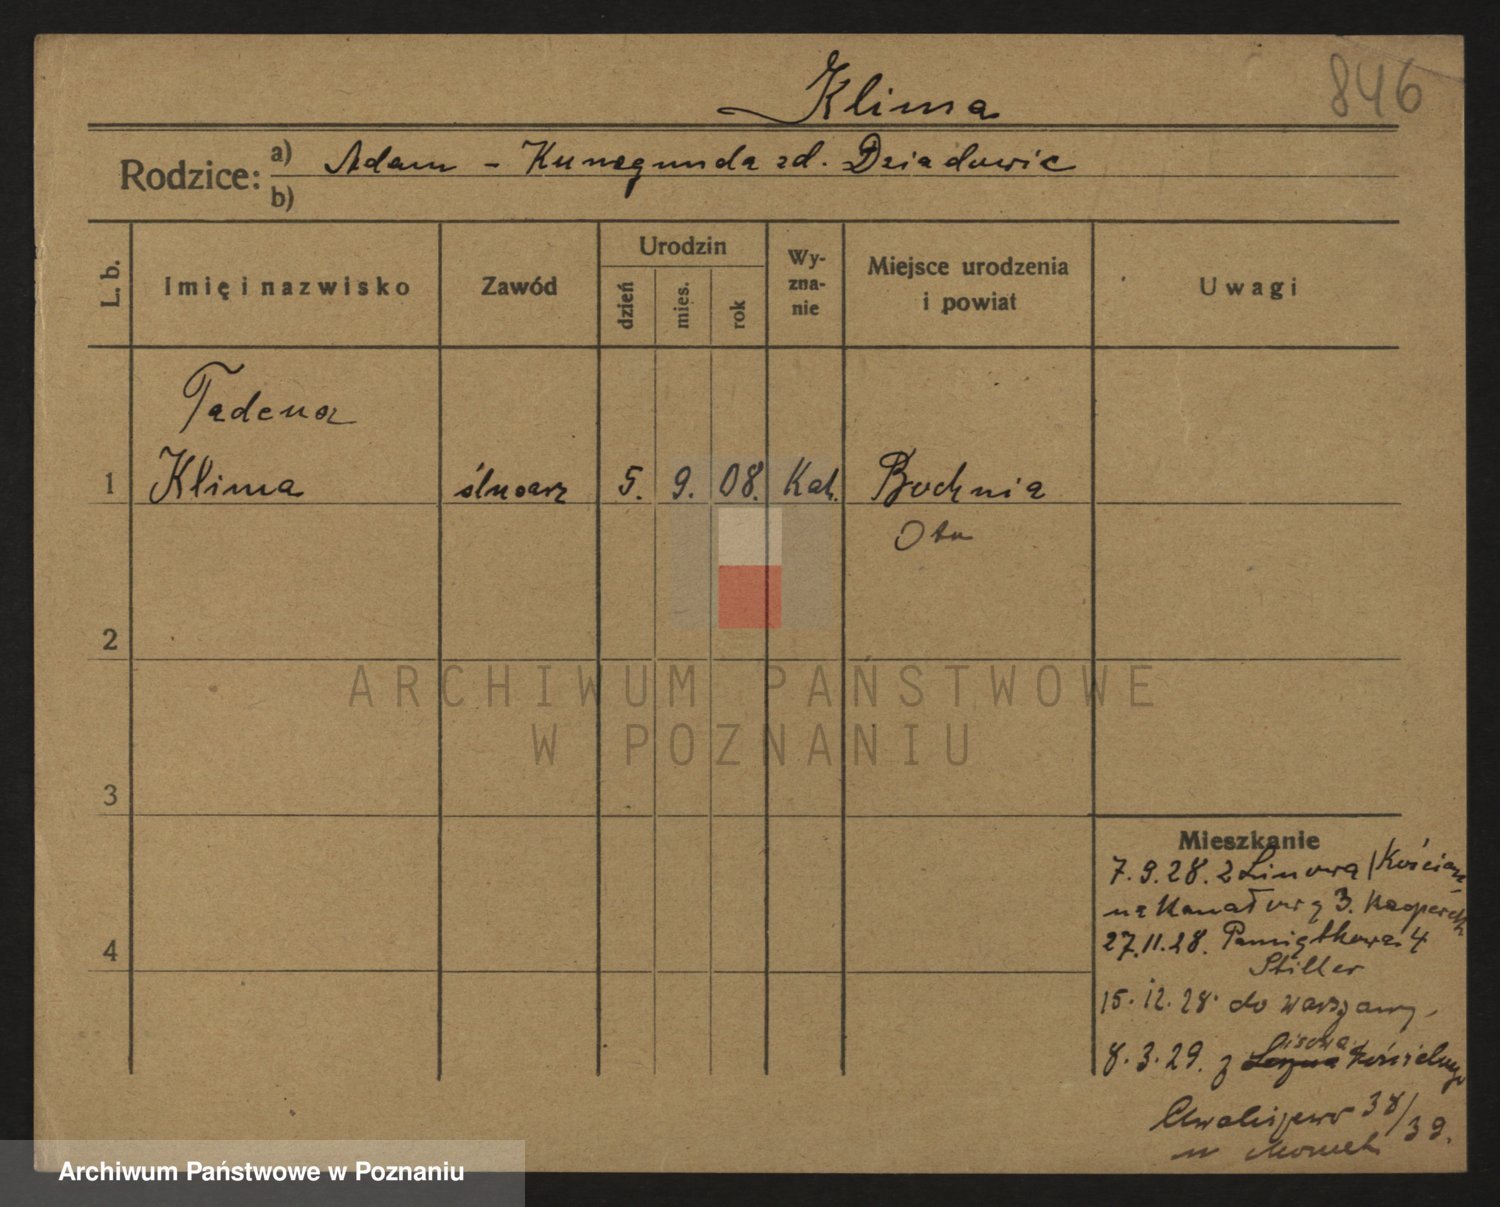 Klima
846
Rodzice: a) Adam - Kunegunda zd. Dziadowic
b)
L. b.
Imię i nazwisko
Zawód
Urodzin
dzień
mies.
rok
Wy-
zna-
nie
Miejsce urodzenia
i powiat
Uwagi
Tadeusz
1 Klima ślusarz 5. 9. 08. Kat. Bochnia
2
3
4
ARCHIWUM PAŃSTWOWE
W POZNANIU
Mieszkanie
7.9.28. z Linową /Kościan
na Kanałową 3. Kacperek
27.11.28. Pamiątkowa 4
Stiller
15.12.28. do Warszawy
8.3.29. z
Chwaliszewo 38/39.
Archiwum Państwowe w Poznaniu